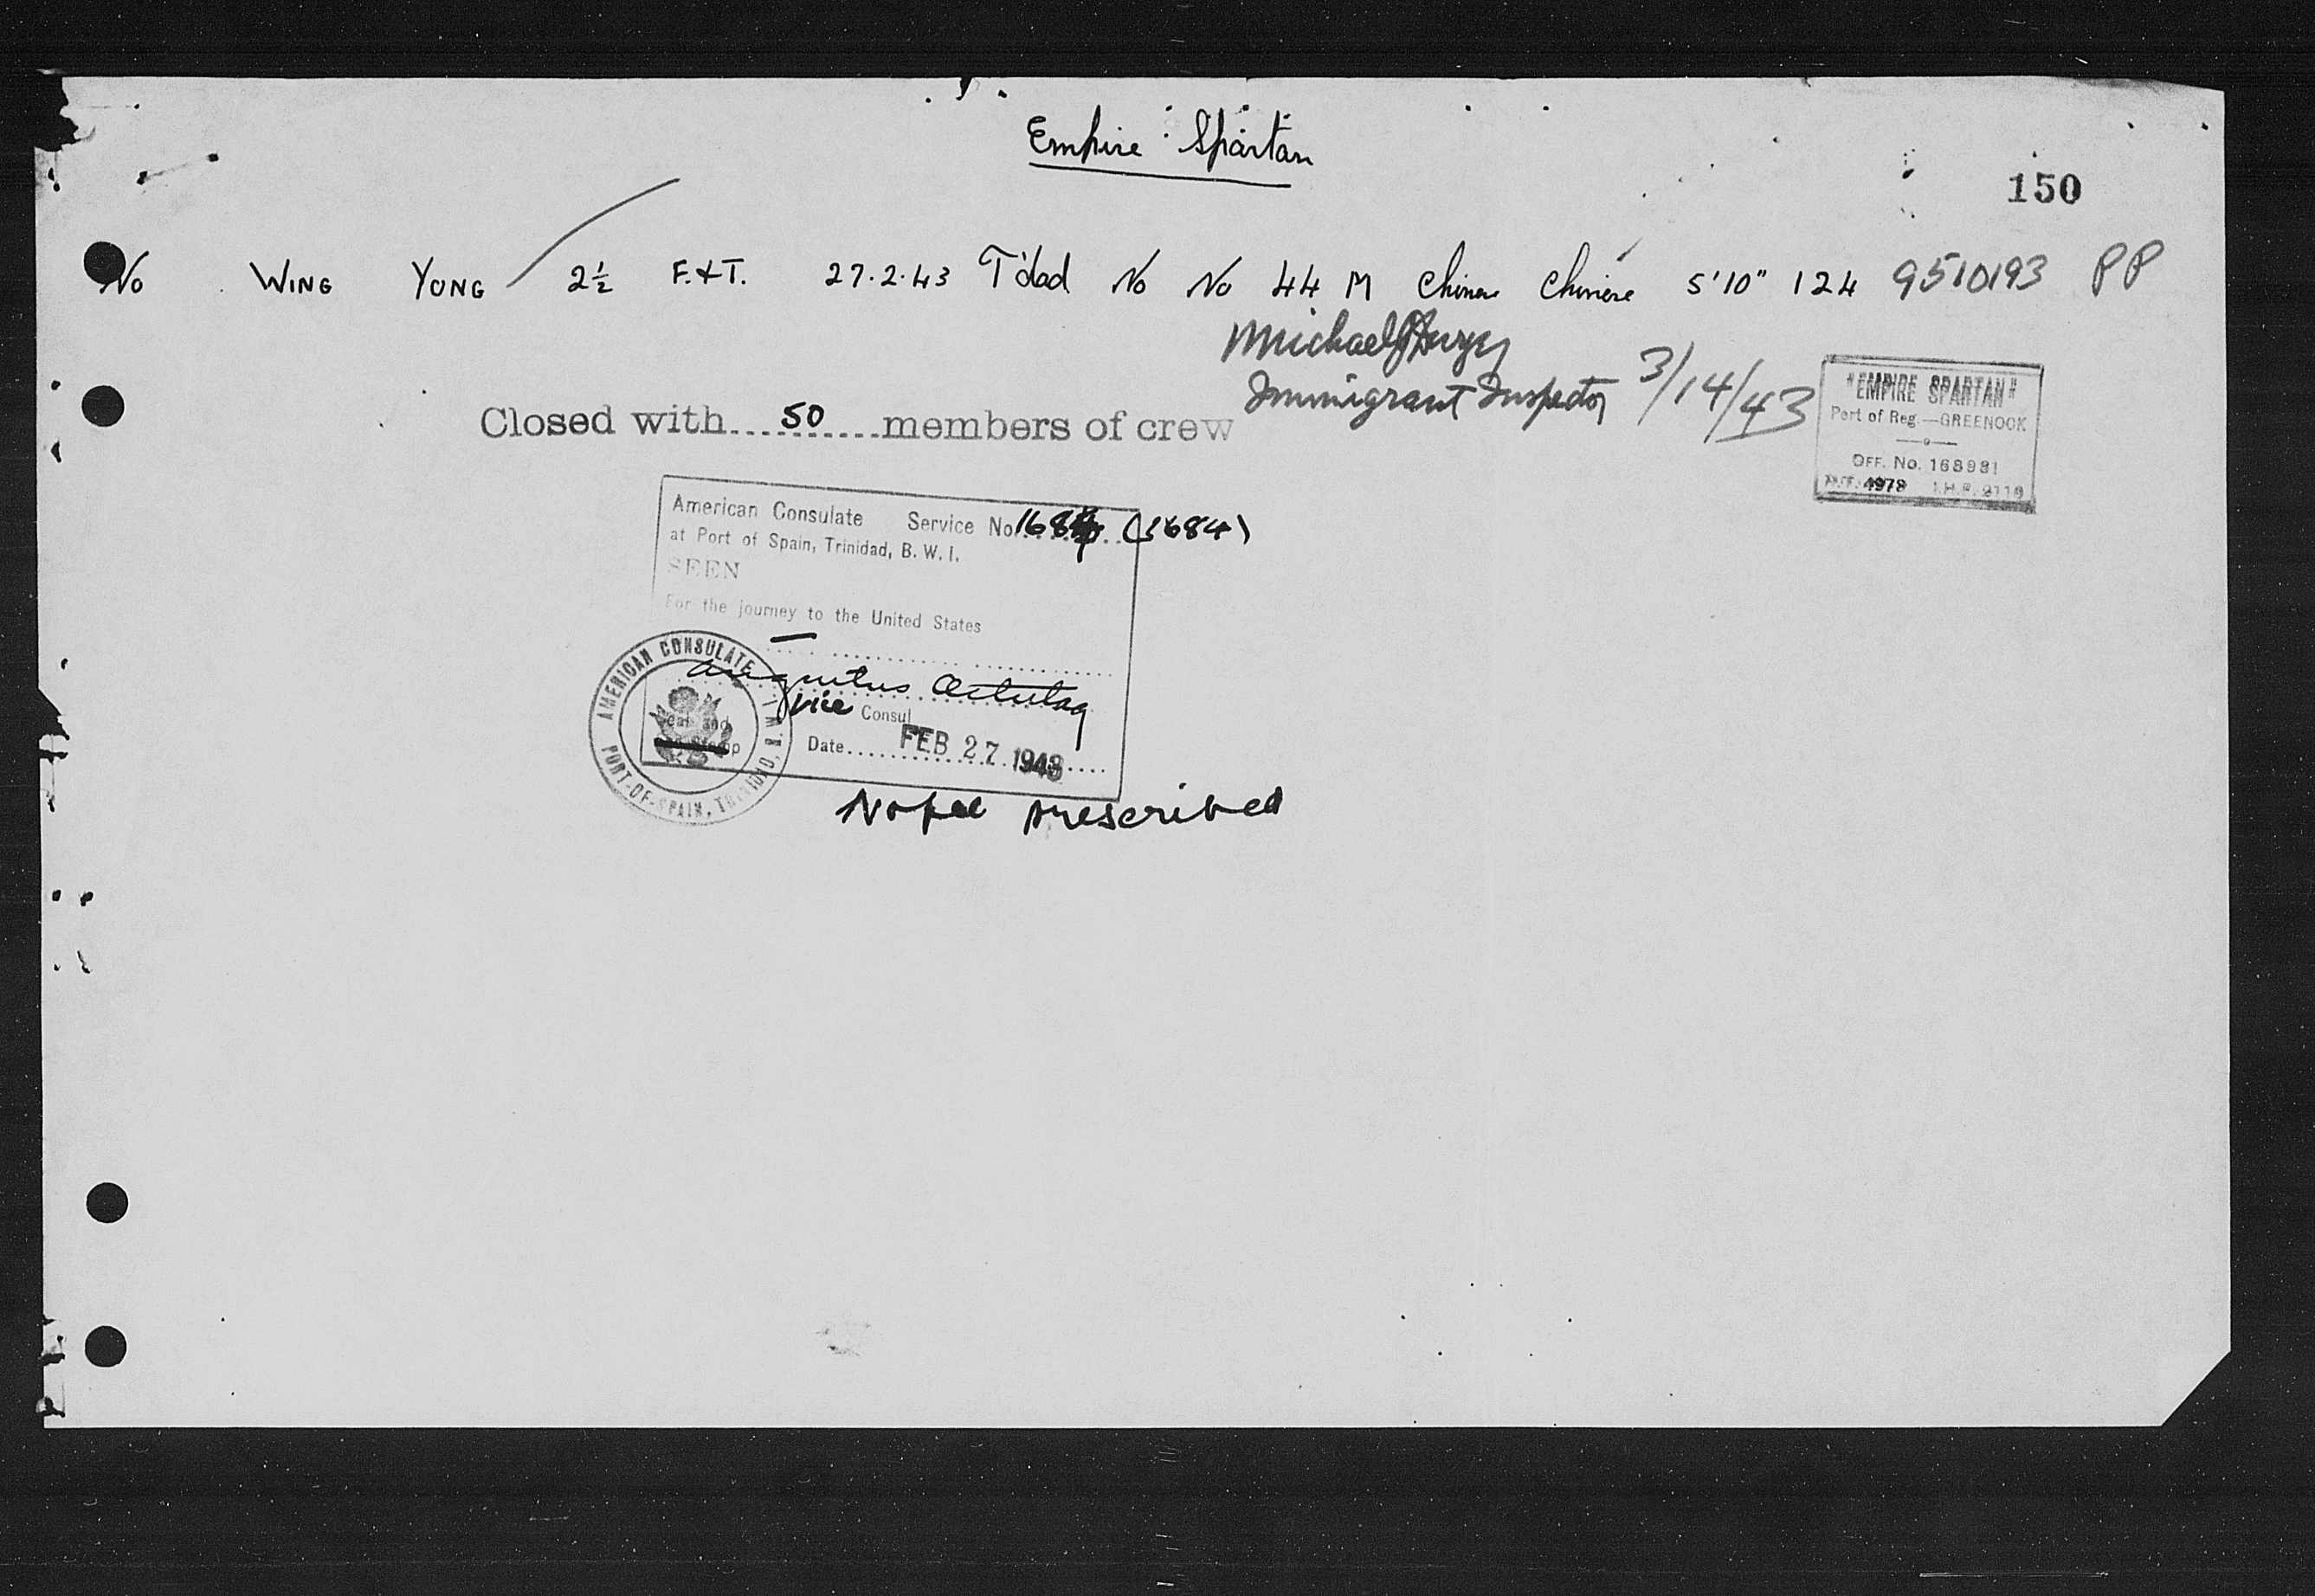 Empire Spartan
150
No WING YONG 2½ F.&T. 27.2.43 T'dad No No 44 M Chinese Chinese 5'10" 124 9510193 PP
Michael
Immigrant Inspector 3/14/43
Closed with....50....members of crew
"EMPIRE SPARTAN"
Port of Reg.—GREENOCK
OFF. No. 168981
American Consulate Service No. (1684)
at Port of Spain, Trinidad, B. W. I.
SEEN
For the journey to the United States
Vice Consul
Seal and
Date FEB 27 1943
AMERICAN CONSULATE
PORT-OF-SPAIN, TRINIDAD, B.W.I.
No fee prescribed